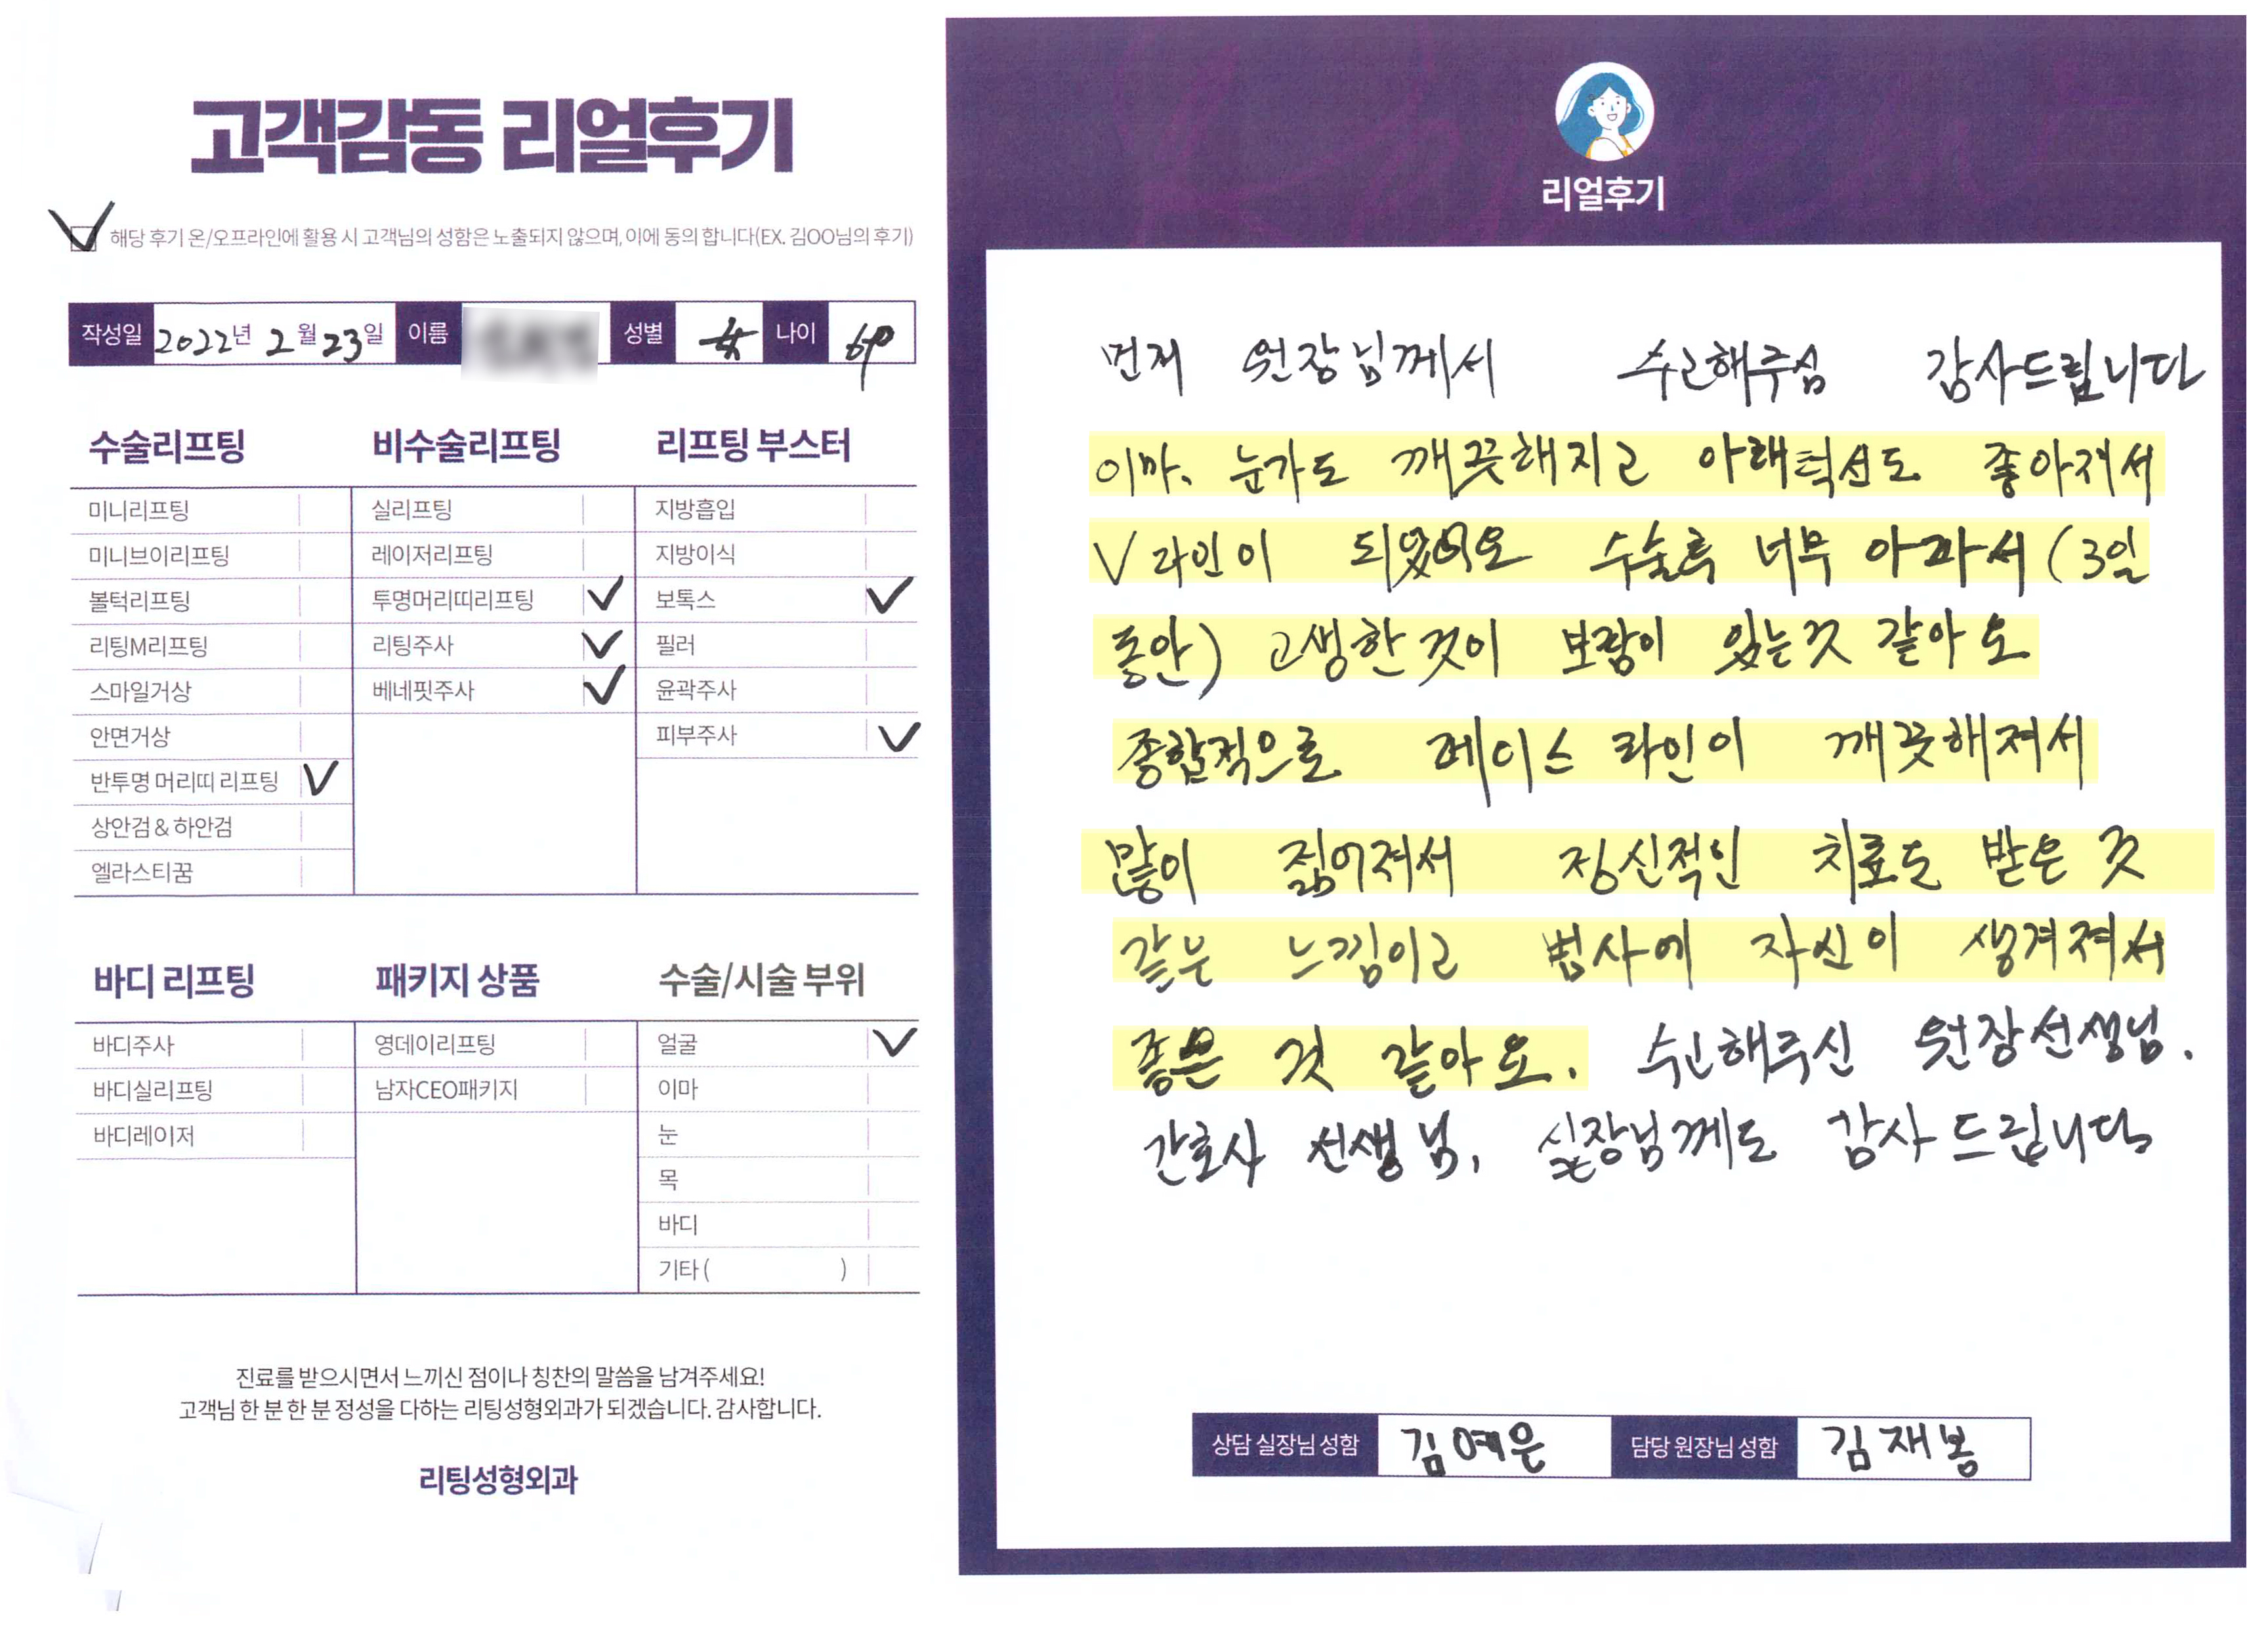 고객감동 리얼후기
해당 후기 온/오프라인에 활용 시 고객님의 성함은 노출되지 않으며, 이에 동의 합니다(EX. 김OO님의 후기)
작성일 2022년 2월 23일 이름 성별 女 나이
수술리프팅
미니리프팅
미니브이리프팅
볼턱리프팅
리팅M리프팅
스마일거상
안면거상
반투명 머리띠 리프팅
상안검 & 하안검
엘라스티꿈
비수술리프팅
실리프팅
레이저리프팅
투명머리띠리프팅
리팅주사
베네핏주사
리프팅 부스터
지방흡입
지방이식
보톡스
필러
윤곽주사
피부주사
바디 리프팅
바디주사
바디실리프팅
바디레이저
패키지 상품
영데이리프팅
남자CEO패키지
수술/시술 부위
얼굴
이마
눈
목
바디
기타 ( )
진료를 받으시면서 느끼신 점이나 칭찬의 말씀을 남겨주세요!
고객님 한 분 한 분 정성을 다하는 리팅성형외과가 되겠습니다. 감사합니다.
리팅성형외과
리얼후기
먼저 원장님께서 수고해주심 감사드립니다
이마, 눈가도 깨끗해지고 아래턱선도 좋아져서
V라인이 되었어요 수술후 너무 아파서 (3일
동안) 고생한것이 보람이 있는것 같아요
종합적으로 페이스 라인이 깨끗해져서
많이 젊어져서 정신적인 치료도 받은 것
같은 느낌이고 범사에 자신이 생겨져서
좋은 것 같아요. 수고해주신 원장선생님.
간호사 선생님, 실장님께도 감사드립니다
상담 실장님 성함 김예은 담당 원장님 성함 김재봉